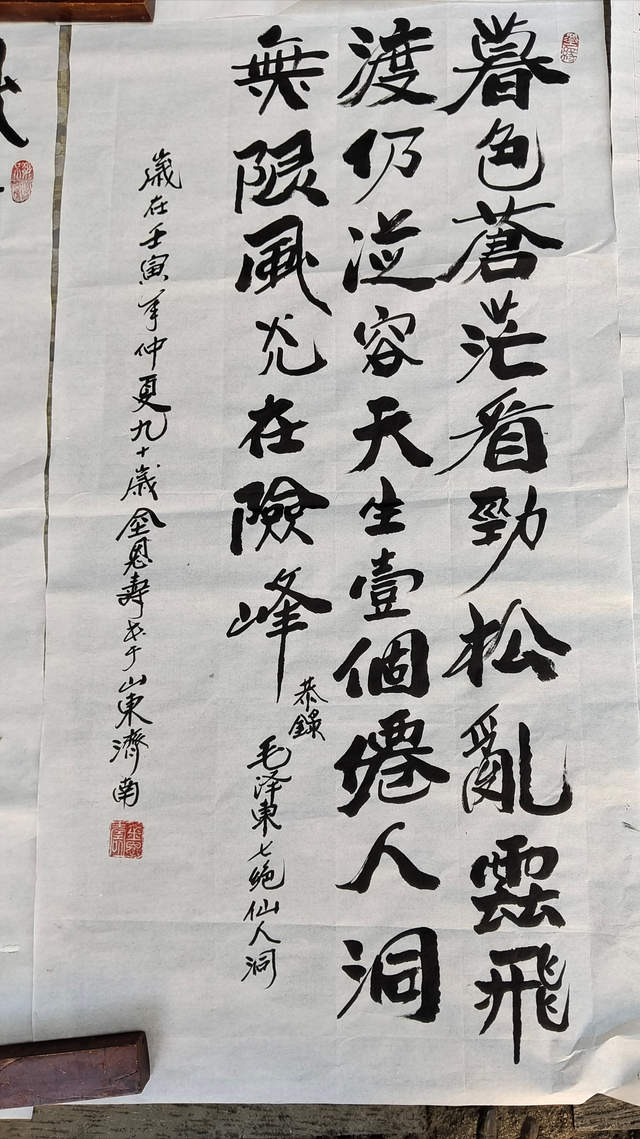 暮色蒼茫看勁松亂雲飛
渡仍從容天生壹個僊人洞
無限風光在險峰
恭錄
毛泽東七绝仙人洞
歲在壬寅年仲夏九十歲金恩壽书于山東濟南